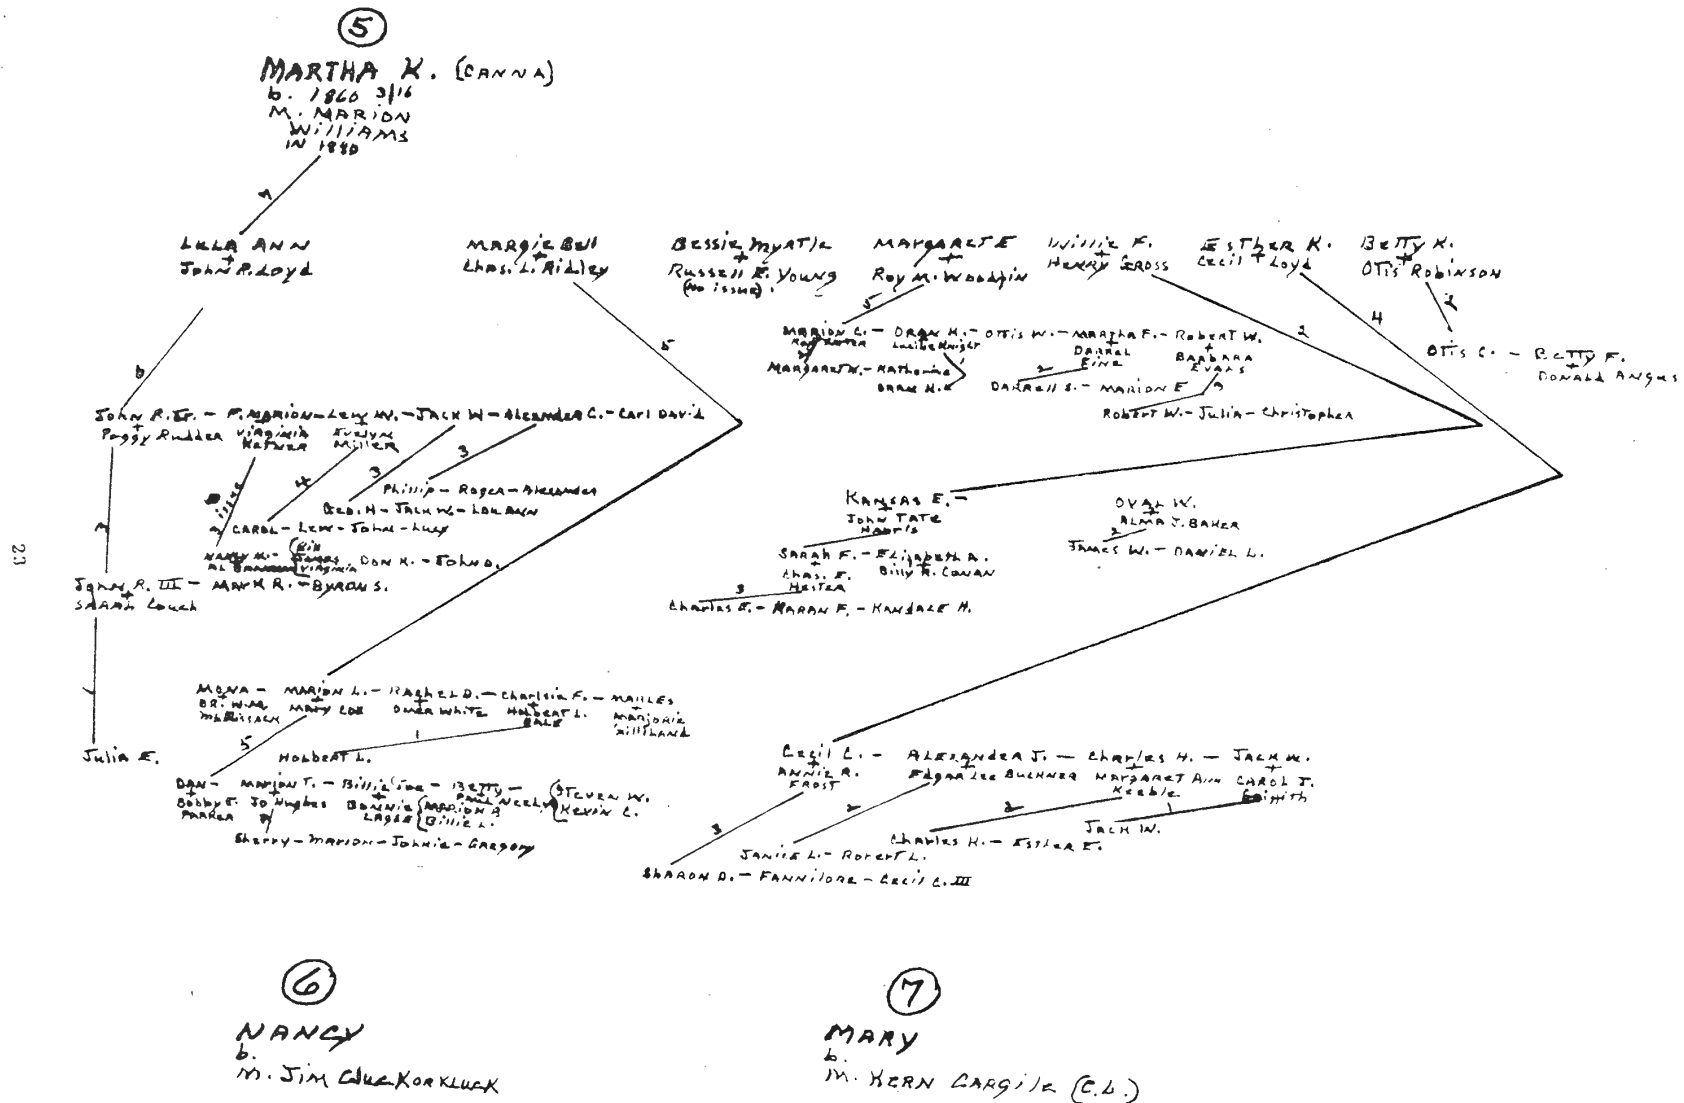 5
MARTHA K. (CANNA)
b. 1860 3/16
M. MARION
WilliAMS
IN 1880
LULA ANN
+
John R. Loyd
MARgie Bell
+
Chas. L. Ridley
Bessie MyRTle
+
Russell E. Young
(no issue).
MARgARET E
+
Roy M. Woodfin
Willie F.
+
HENRY GROSS
EsTher K.
+
Cecil Loyd
BeTTy K.
+
OTis Robinson
6
5
5
2
4
2
MARION C. - ORAN H. - OTTis W. - MARTHA F. - Robert W.
Lucille Knight
+
DARREL
+
BARBARA
EVANS
MARgARET - Katherine
2
DARRELL S. - MARION E
Robert W. - Julia - Christopher
OTis C. - BeTTy F.
+
DONALD ANgus
John R. Jr. - F. MARION - Lew W. - JACK W - Alexander C. - Carl David
+
Peggy Rudder
VirgiNiA
KETNER
EVelyn
Miller
4
3
3
Phillip - Roger - Alexander
Geo. H - JACK W - Lou ANN
CAROL - Lew - John - Lucy
DON K. - John D.
John R. III - MARK R. - BYRON S.
+
SARAh Couch
Julia E.
23
KANSAS E. -
+
John TATE
OVAL W.
+
ALMA J. BAKER
2
JAMES W. - DANiEL L.
SARAh F. - Elizabeth A.
+
Chas. E.
HesteR
+
Billy R. CONAN
3
Charles E. - - KANDALE H.
MONA - MARION L. - RAchel D. - Charlsie F. -
+
DR. WM
+
MARY LOU
+
OMER White
+
Holbert L.
MARJORIE
Gilliland
5
1
Holbert L.
DAN - MARION T. - Billie Joe - BeTTy -
+
Bobby E.
PARKER
+
Jo Hughes
+
BONNIE
MARION R
Billie L.
PAUL Neely
STEVEN W.
KEVIN C.
Sherry - MARION - Johnie - GREgory
Cecil C. - ALEXANDER J. - Charles H. - JACK W.
+
ANNIE R.
FROST
EdgAR Lee BUCKNER
+
MARgARET ANN
Keeble
+
CAROL J.
Griffith
3
2
2
1
Charles H. - Esther E.
JACK W.
JANiCE L. - RobeRT L.
ShARON D. - - Cecil C. III
6
NANCY
b.
M. Jim
7
MARY
b.
M. KERN CARgile (C.L.)